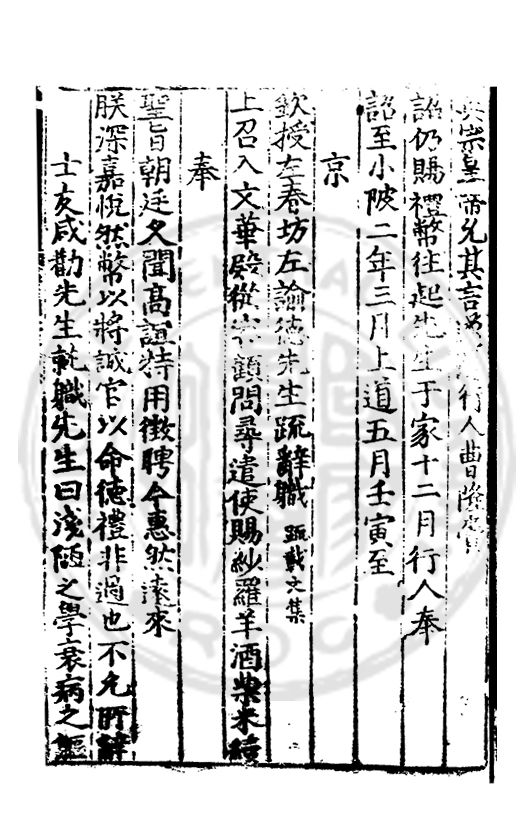 英宗皇帝允其言遣行人曹隆齎
詔仍賜禮幣往起先生于家十二月行人奉
詔至小陂二年三月上道五月壬寅至
京
欽授左春坊左諭德先生疏辭職 疏載文集
上召入文華殿從容顧問尋遣使賜紗羅羊酒柴米續
奉
聖旨朝廷久聞高誼特用徵聘今惠然遠來
朕深嘉悅然幣以將誠官以命德禮非過也不允所辭
士友咸勸先生就職先生曰淺陋之學衰病之軀